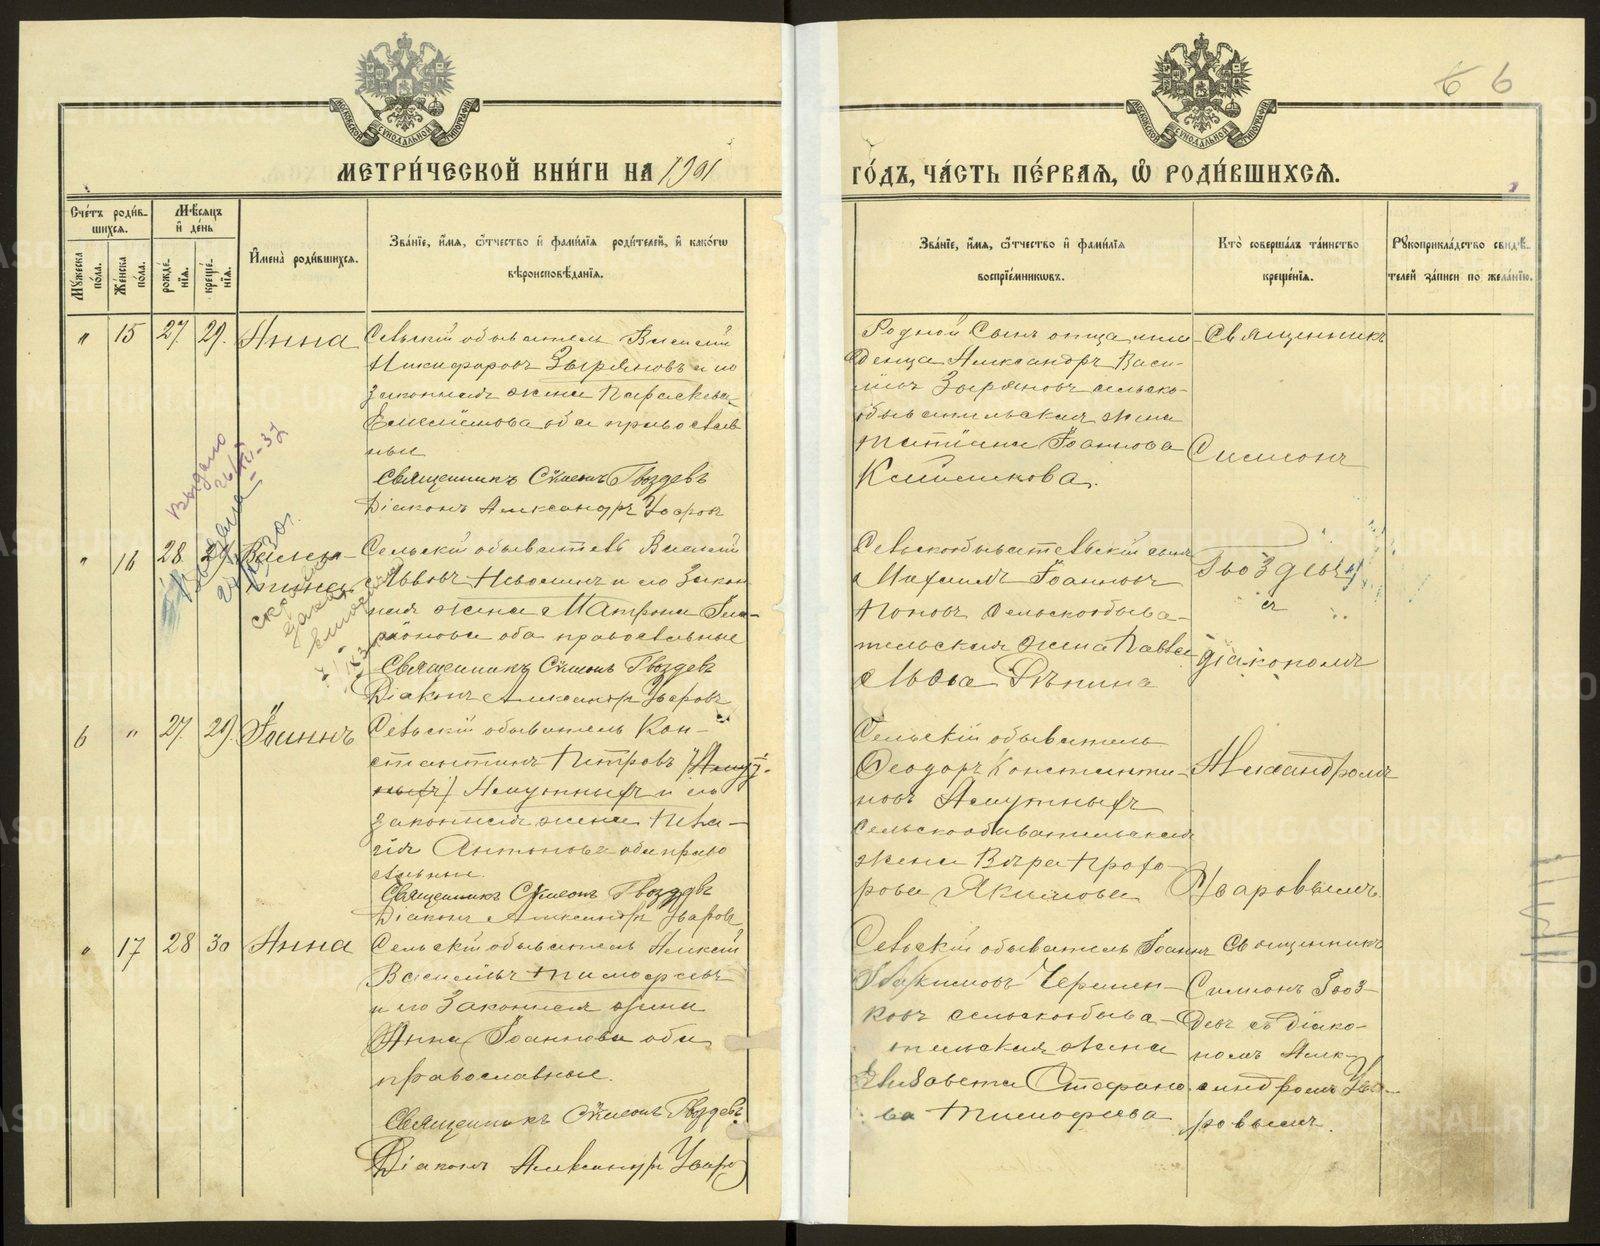 МЕТРИ́ЧЕСКОЙ КНИ́ГИ НА 1901
ГО́ДЪ, ЧА́СТЬ ПЕ́РВАЯ, Ѿ РОДИ́ВШИХСЯ.
6 6
Сче́тъ роди́вшихся.
Мѣсяцъ и де́нь
Имена̀ роди́вшихся.
Зва́нїе, и́мя, ѻ́тчество и фами́лїя роди́телей, и како́гѡ
вѣроисповѣ́данїя.
Му́жеска по́ла.
Же́нска по́ла.
рожде́нїя.
креще́нїя.
Зва́нїе, и́мя, ѻ́тчество и фами́лїя
воспрїе́мникѡвъ.
Кто̀ соверша́лъ та́инство
креще́нїя.
Рꙋкоприкла́дство свидѣ́телей за́писи по жела́нїю.
" 15 27 29. Анна
Сельскій обыватель Василій
Никифоровъ Зыряновъ и его
законная жена Параскева
Емелiанова оба православ
ные
Священникъ Сѵмеонъ Гвоздевъ
Діаконъ Александръ Уваровъ
Родной сынъ отца мла
денца Александръ Васи-
ліевъ Зыряновъ сельско-
обывательская жена
Іоаннова
Священникъ
Симеонъ
" 16 28 29
Сельскій обыватель Василій
Львовъ и его закон
ная жена Матрона
оба православные
Священникъ Сѵмеонъ Гвоздевъ
Діаконъ Александръ Уваровъ
Сельскообывательскій сынъ
Максимъ Іоанновъ
Поповъ сельскообыва-
тельская жена Павла
Львова Рѣпина
Гвоздевъ
съ
діакономъ
6 " 27 29 Іоаннъ
Сельскій обыватель Кон-
стантинъ Петровъ
Ялунныхъ и его
законная жена Пела-
гія Антонова оба право
славные.
Священникъ Сѵмеонъ Гвоздевъ
Діаконъ Александръ Уваровъ
Сельскій обыватель
Ѳеодоръ Константи-
новъ
сельскообывательская
жена Вѣра Прохо-
рова Якимова
Александромъ
Уваровымъ.
" 17 28 30 Анна
Сельскій обыватель Алексій
Васильевъ Тимофеевъ
и его законная жена
Анна Іоаннова оба
православные.
Священникъ Сѵмеонъ Гвоздевъ
Діаконъ Александръ Уваровъ
Сельскій обыватель Іоаннъ
Черемен-
ковъ сельскообыва-
тельская жена
Елизавета Стефано
ва Тимофеева
Священникъ
Симеонъ Гвоз-
девъ съ діако-
номъ Алек-
сандромъ Ува-
ровымъ.